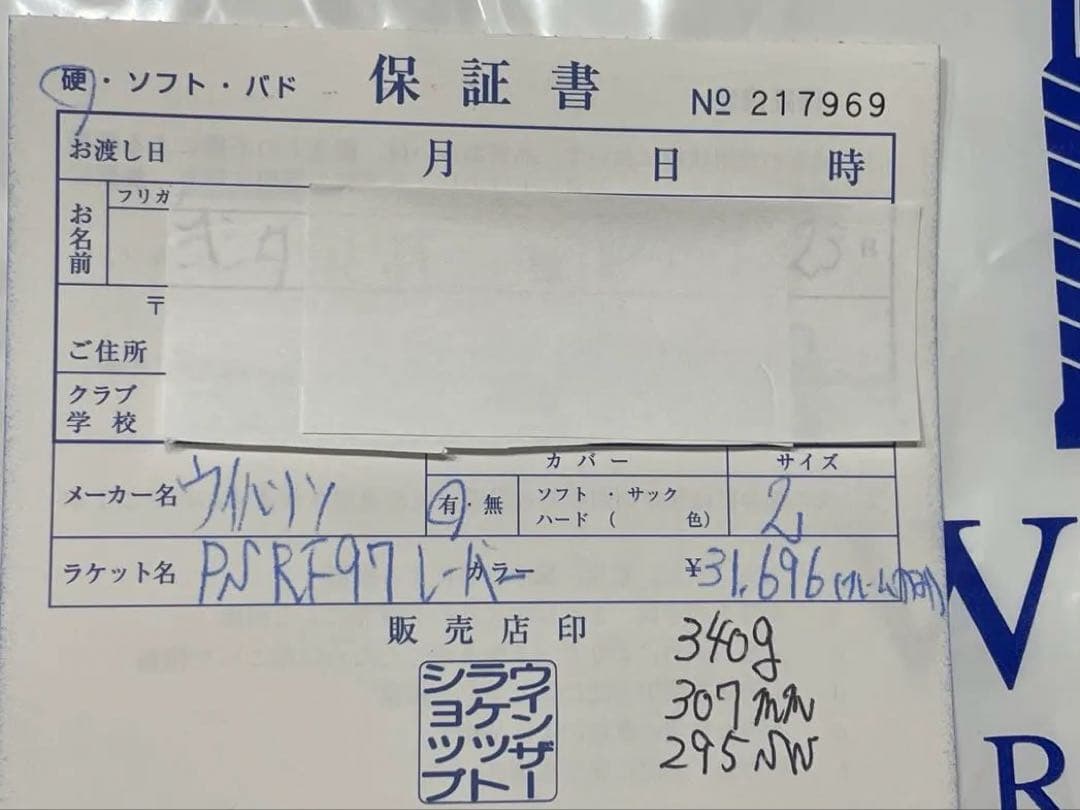 硬・ソフト・バド 保証書 № 217969
お渡し日 月 日 時
お名前 フリガ
〒
ご住所
クラブ
学校
カバー サイズ
メーカー名 ウイルソン 有・無 ソフト・サック
ハード( 色) 2
ラケット名 PS RF97 レーバー カラー ¥31,696
販売店印
340g
307mm
295SW
ウインザー
ラケット
ショップ
V
R